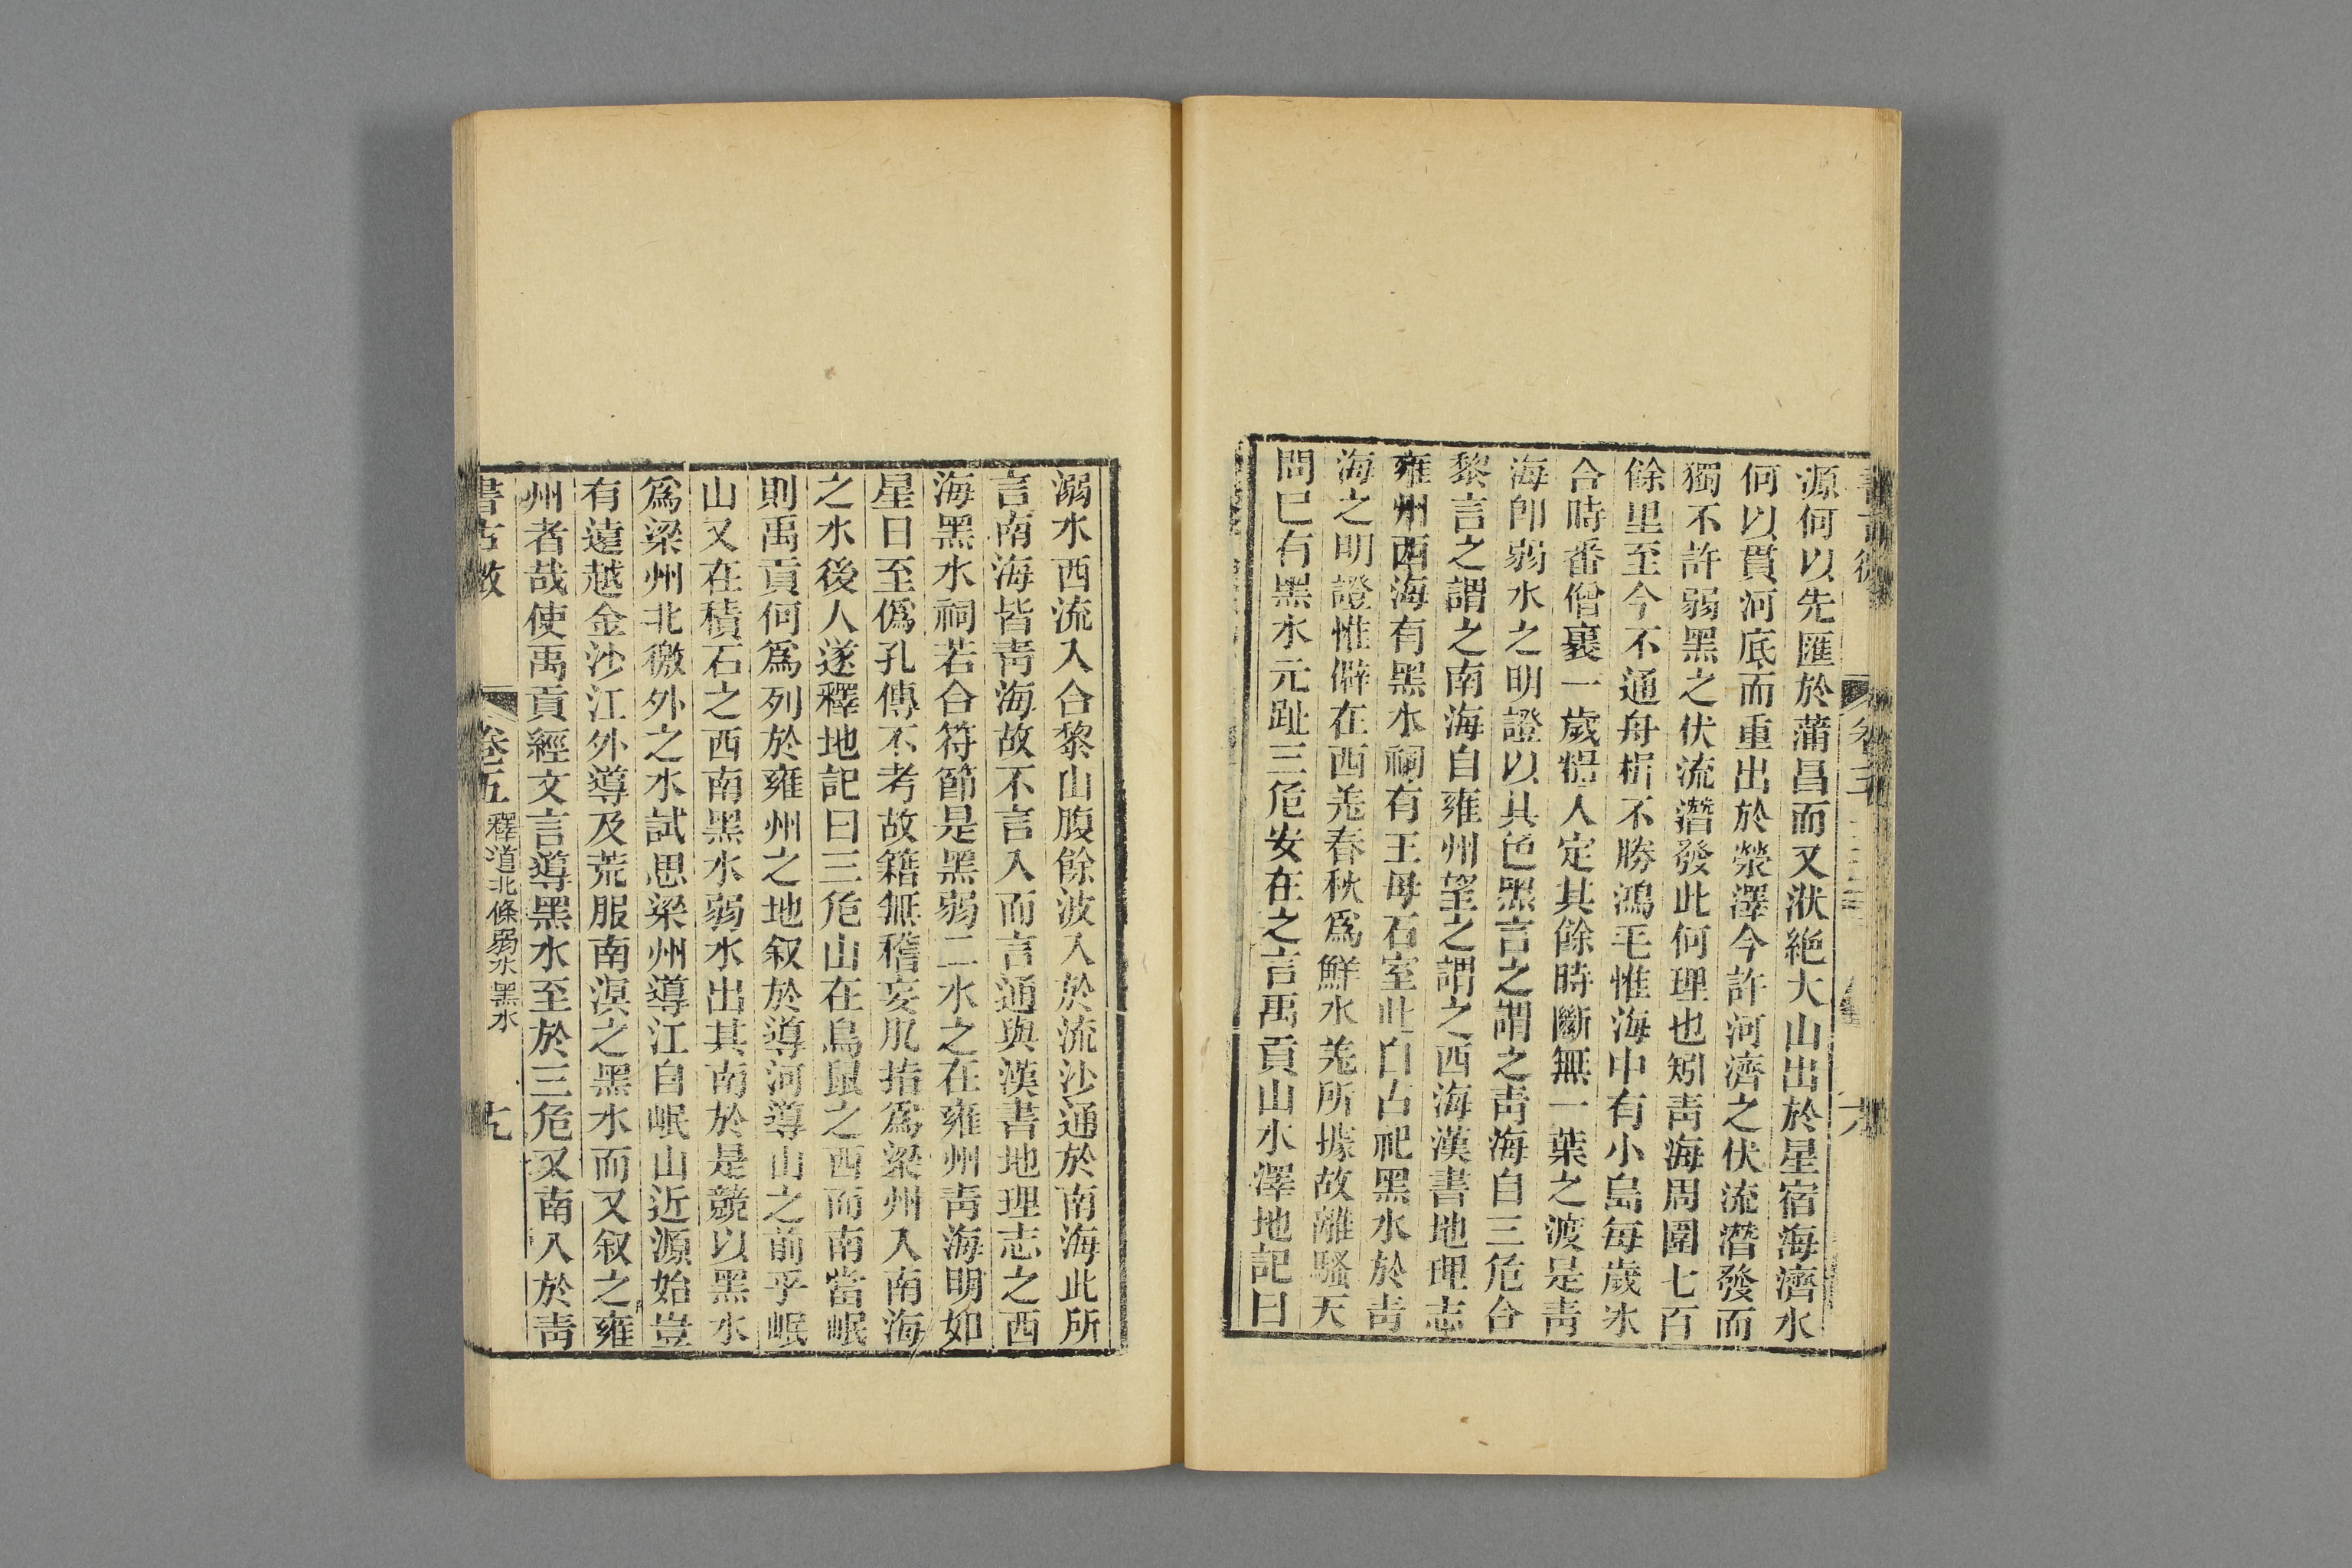 源何以先匯於蒲昌而又洑絶大山出於星宿海濟水
何以貫河底而重出於滎澤今許河濟之伏流潛發而
獨不許弱黑之伏流潛發此何理也矧靑海周圍七百
餘里至今不通舟楫不勝鴻毛惟海中有小島每歲氷
合時番僧裹一歲糧入定其餘時斷無一葉之渡是靑
海卽弱水之明證以其色黑言之謂之靑海自三危合
黎言之謂之南海自雍州望之謂之西海漢書地理志
雍州西海有黑水祠有王母石室此自古祀黑水於靑
海之明證惟僻在西羌春秋爲鮮水羌所據故離騷天
問已有黑水元趾三危安在之言禹貢山水澤地記曰
溺水西流入合黎山腹餘波入於流沙通於南海此所
言南海皆靑海故不言入而言通與漢書地理志之西
海黑水祠若合符節是黑弱二水之在雍州靑海明如
星日至僞孔傳不考故籍無稽妄肊指爲梁州入南海
之水後人遂釋地記曰三危山在鳥鼠之西而南當岷
則禹貢何爲列於雍州之地叙於導河導山之前乎岷
山又在積石之西南黑水弱水出其南於是競以黑水
爲梁州北徼外之水試思梁州導江自岷山近源始豈
有遠越金沙江外導及荒服南溟之黑水而又叙之雍
州者哉使禹貢經文言導黑水至於三危又南入於靑
卷五 釋道北條弱水黑水